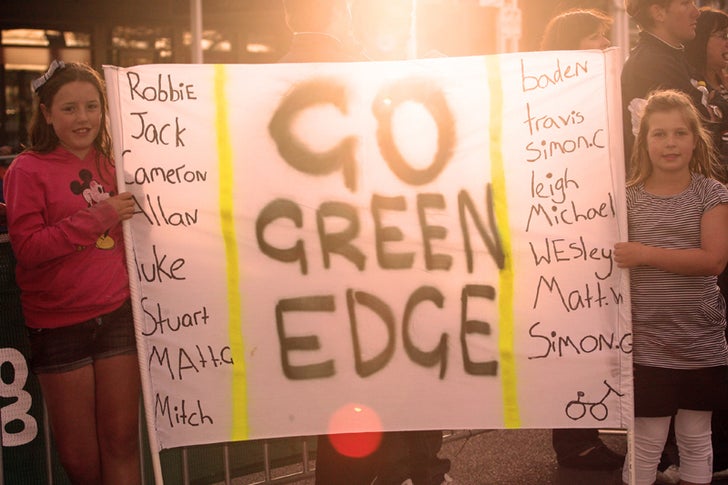 Robbie
Jack
Cameron
Allan
luke
Stuart
MAtt.G
Mitch
GO
GREEN
EDGE
baden
travis
Simon.C
leigh
Michael
WEsley
Matt.w
SiMON.G